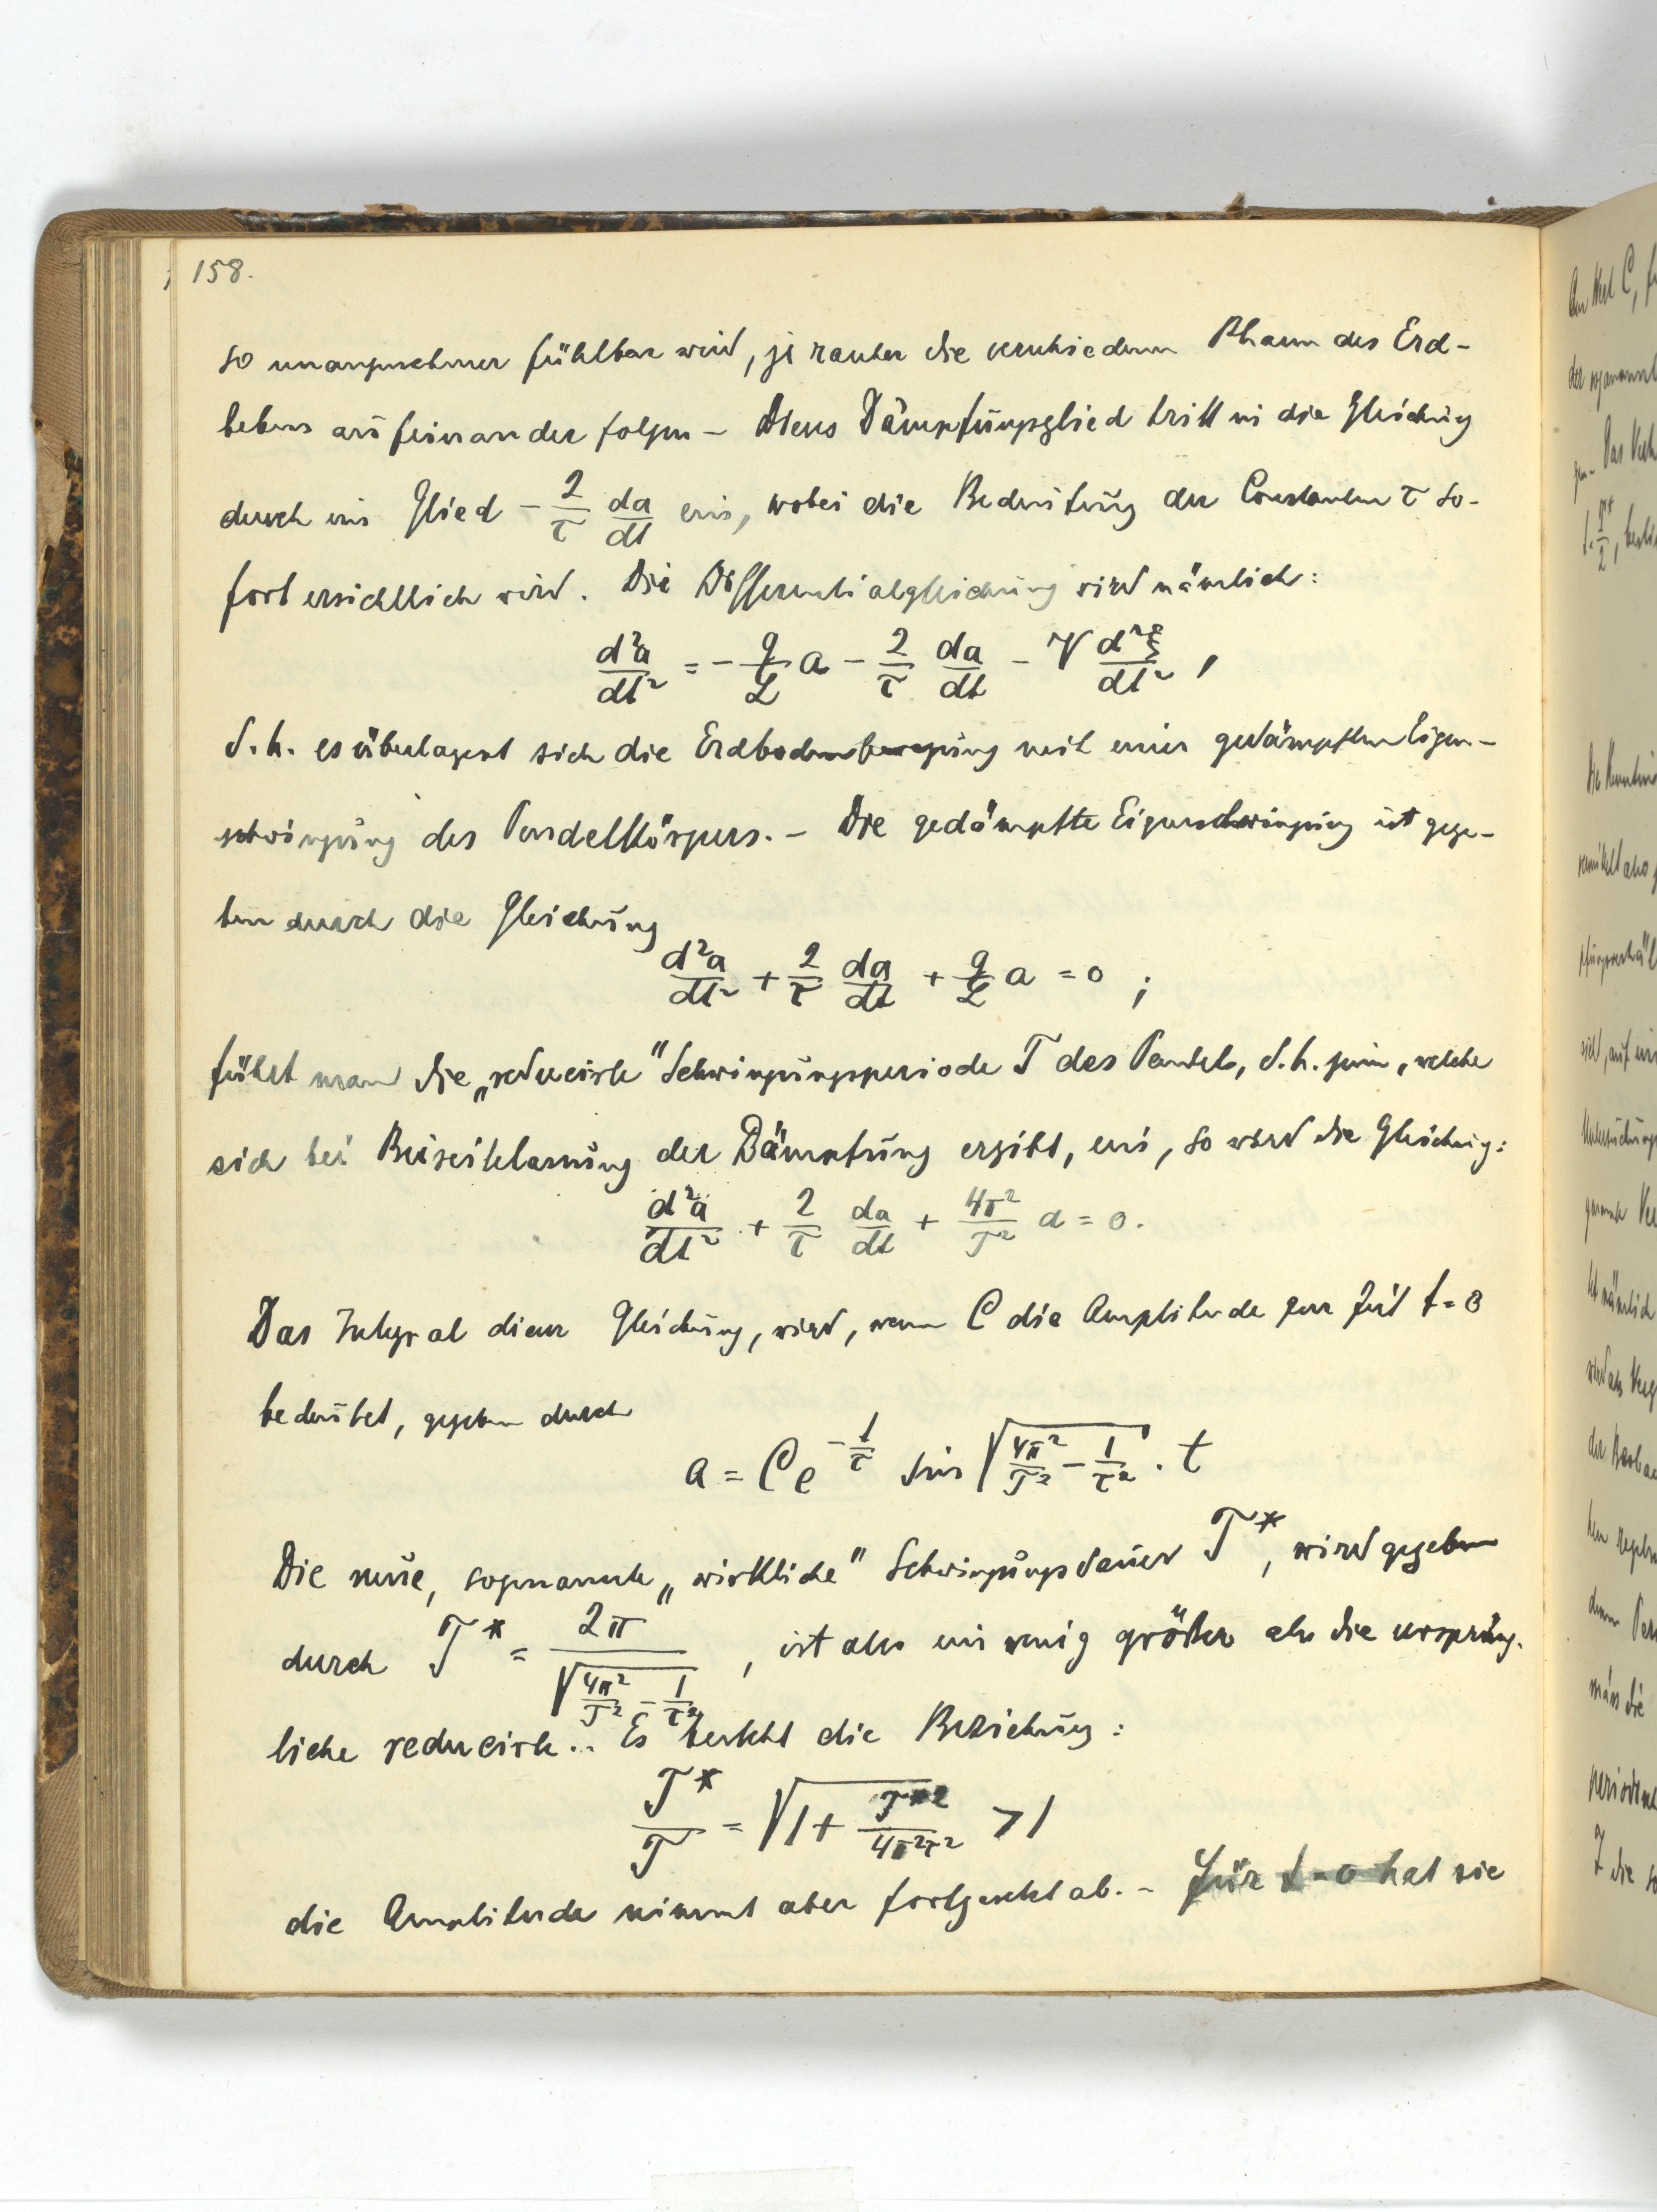 158.
so unangenehmer fühlbar wird, je rascher die verschiedenen Phasen des Erd-
bebens aufeinander folgen – Dieses Dämpfungsglied tritt in die Gleichung
durch ein Glied − 2/τ da/dt ein, wobei die Bedeutung der Constanten τ so-
fort ersichtlich wird. Die Differentialgleichung wird nämlich:
d²a/dt² = − g/L a − 2/τ da/dt − V d²ξ/dt² ,
d.h. es überlagert sich die Erdbodenbewegung mit einer gedämpften Eigen-
schwingung des Pendelkörpers. – Die gedämpfte Eigenschwingung ist gege-
ben durch die Gleichung
d²a/dt² + 2/τ da/dt + g/L a = 0 ;
führt man die „reducirte" Schwingungsperiode T des Pendels, d.h. jene, welche
sich bei Beiseitelassung der Dämpfung ergibt, ein, so wird die Gleichung:
d²a/dt² + 2/τ da/dt + 4π²/T² a = 0.
Das Integral dieser Gleichung, wird, wenn C die Amplitude zur Zeit t=0
bedeutet, gegeben durch
a = C e^(−1/τ) sin √(4π²/T² − 1/τ²) · t
Die neue, sogenannte „wirkliche" Schwingungsdauer T*, wird gegeben
durch T* = 2π/√(4π²/T² − 1/τ²) , ist also ein wenig größer als die ursprüng-
liche reducirte.. Es besteht die Beziehung:
T*/T = √(1 + T*²/4π²τ²) > 1
die Amplitude nimmt aber fortgesetzt ab. – Für t=0 hat sie